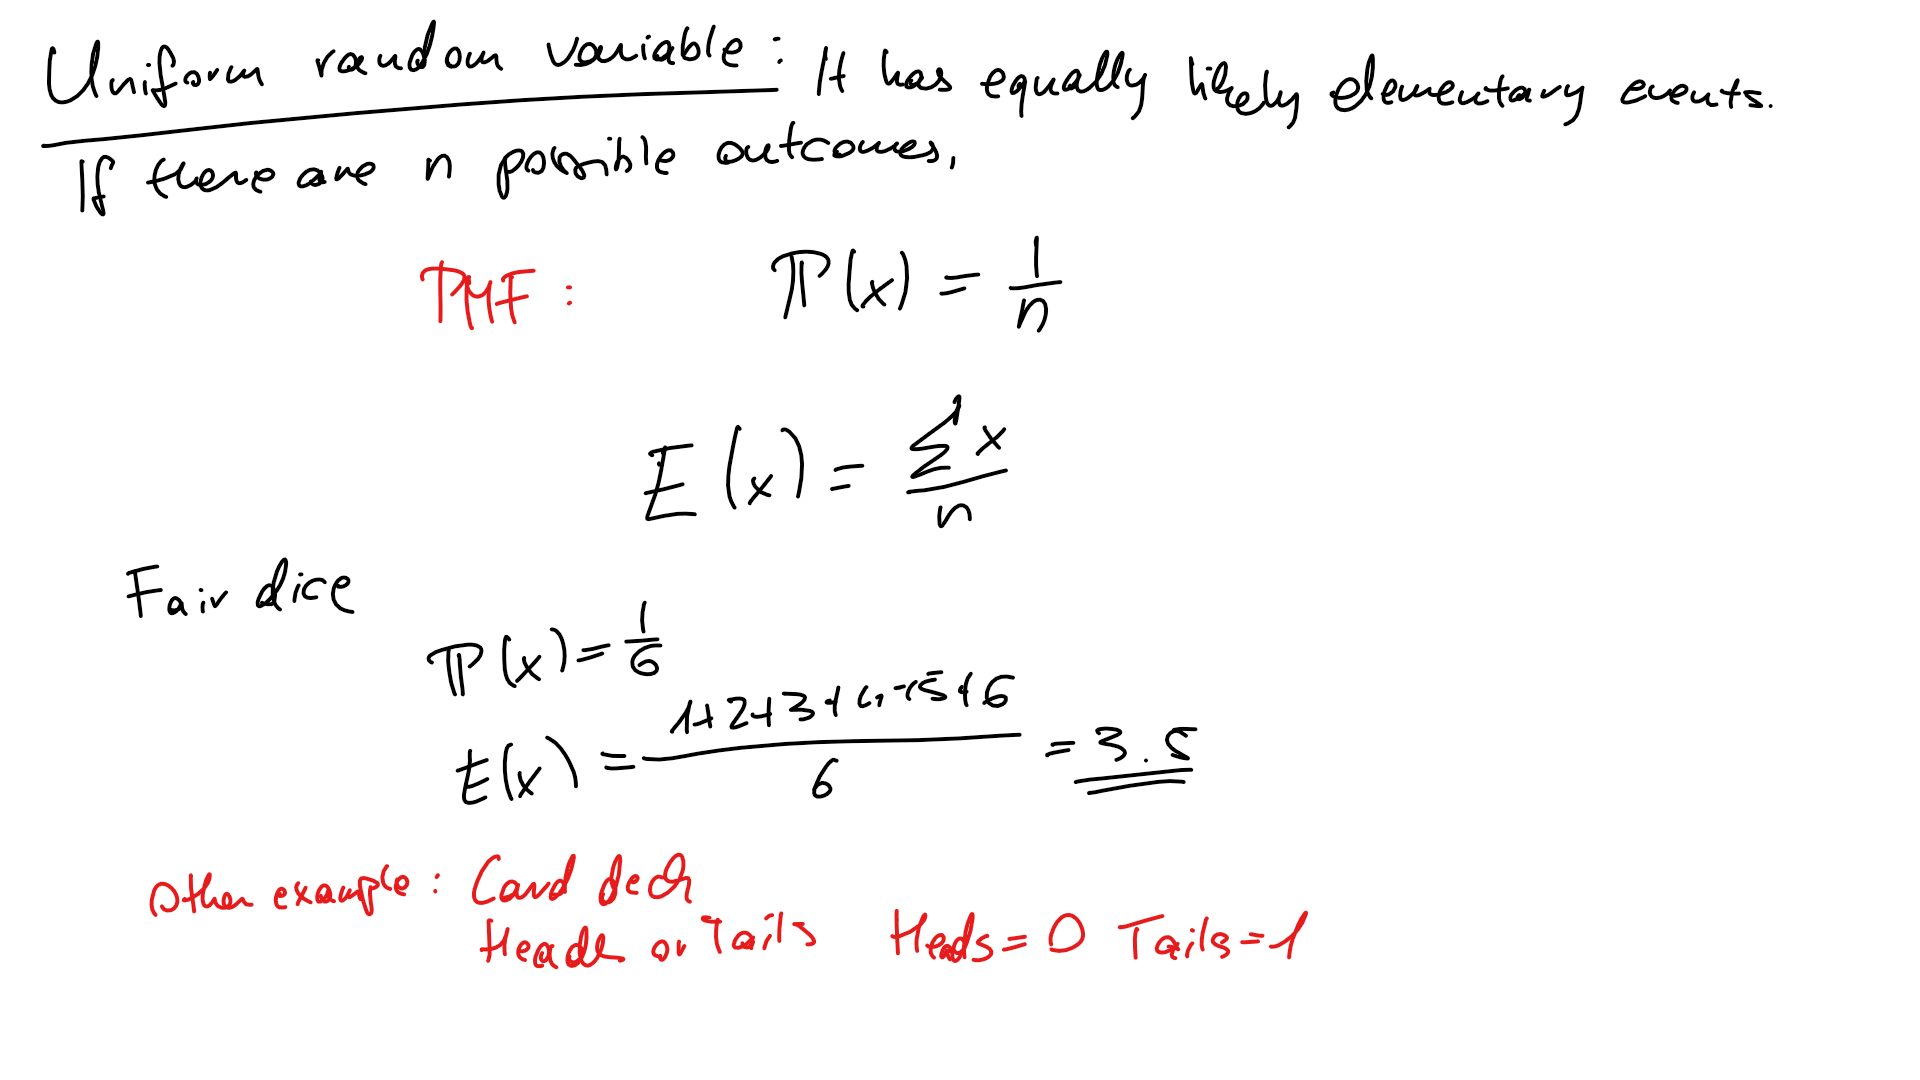 Uniform random variable: It has equally likely elementary events.
If there are n possible outcomes,
PMF: ℙ(x) = 1/n
E(x) = Σx/n
Fair dice
ℙ(x) = 1/6
E(x) = (1+2+3+4+5+6)/6 = 3.5
Other example: Card deck
Heads or Tails Heads=0 Tails=1